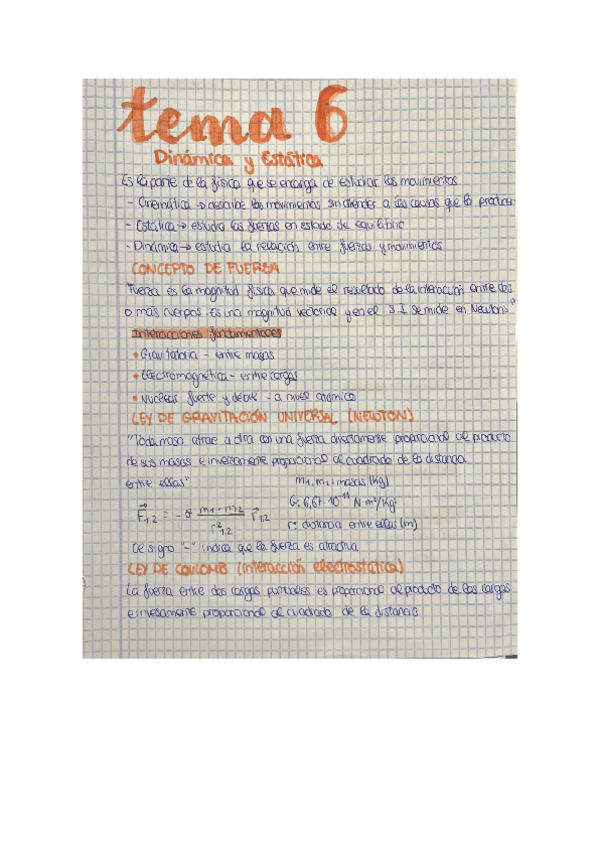 tema 6
Dinámica y Estática
Es la parte de la física que se encarga de estudiar los movimientos
- Cinemática → describe los movimientos sin atender a las causas que lo producen
- Estática → estudia las fuerzas en estado de equilibrio
- Dinámica → estudia la relación entre fuerzas y movimientos
CONCEPTO DE FUERZA
"Fuerza es la magnitud física que mide el resultado de la interacción entre dos
o más cuerpos. Es una magnitud vectorial y en el S.I se mide en Newtons"
Interacciones fundamentales
• Gravitatoria - entre masas
• Electromagnética - entre cargas
• Nucleas fuerte y débil - a nivel atómico
LEY DE GRAVITACIÓN UNIVERSAL (NEWTON)
"Toda masa atrae a otra con una fuerza directamente proporcional al producto
de sus masas e inversamente proporcional al cuadrado de la distancia
entre ellas"
m1, m2: masas (kg)
G: 6,67·10⁻¹¹ N m²/kg²
F⃗1,2 = - G (m1·m2)/(r²1,2) r⃗1,2
r: distancia entre ellas (m)
el signo "-" indica que la fuerza es atractiva
LEY DE COULOMB (interacción electrostática)
La fuerza entre dos cargas puntuales es proporcional al producto de las cargas
e inversamente proporcional al cuadrado de la distancia